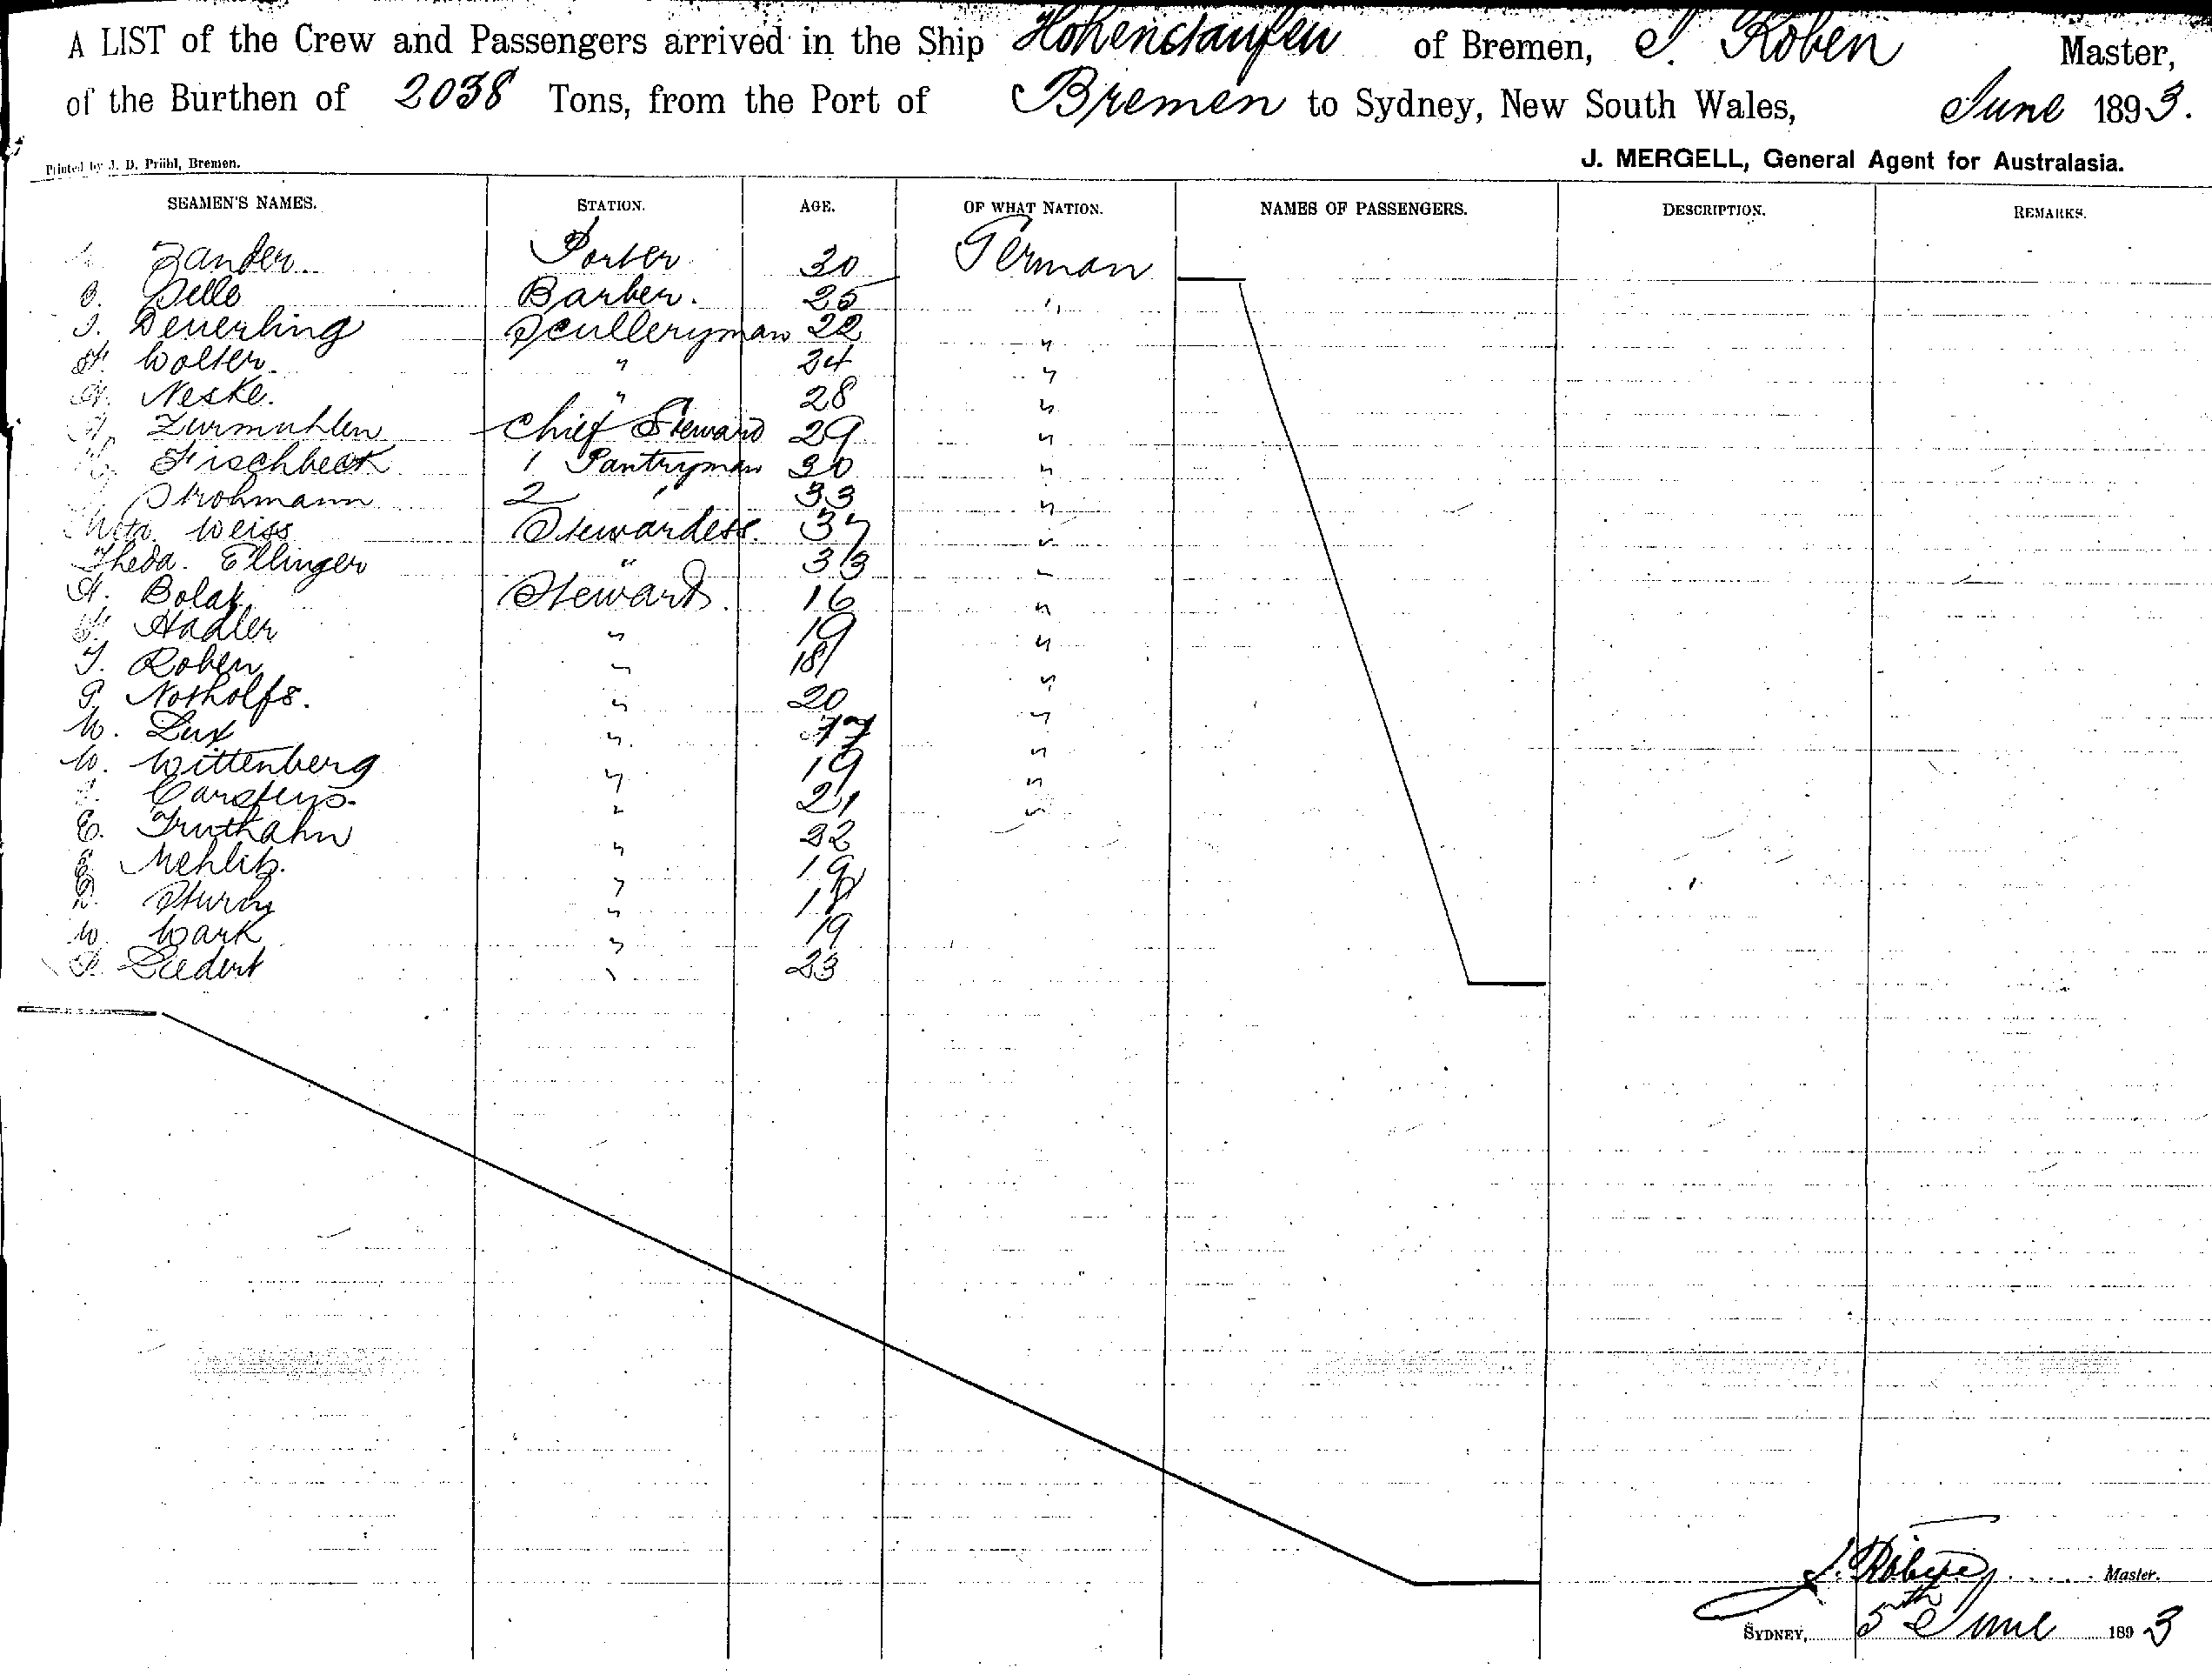 A LIST of the Crew and Passengers arrived in the Ship Hohenstaufen of Bremen, J. Roben Master,
of the Burthen of 2038 Tons, from the Port of Bremen to Sydney, New South Wales, June 1893.
Printed by J. D. Prühl, Bremen.
J. MERGELL, General Agent for Australasia.
SEAMEN'S NAMES. STATION. AGE. OF WHAT NATION. NAMES OF PASSENGERS. DESCRIPTION. REMARKS.
Zander Porter 30 German
Barber. 25 "
Deuerling Sculleryman 22 "
Wolter. " 24 "
Neske. " 28 "
Zurmuhlen Chief Steward 29 "
Fischbeck 1 Pantryman 30 "
Strohmann 2 " 33 "
Meta Weiss Stewardess. 37 "
Theda. Ellinger " 33 "
A. Bolat Steward. 16 "
Hadler " 19 "
J. Roben " 18 "
P. Notholfs. " 20 "
W. Lux " 17 "
W. Wittenberg " 19 "
Carstens. " 21 "
E. Truthahn " 22
E. Mehlitz. " 19
Sturm " 18
W. Wark " 19
Liedert " 23
J. Röben Master.
SYDNEY, 5th June 1893